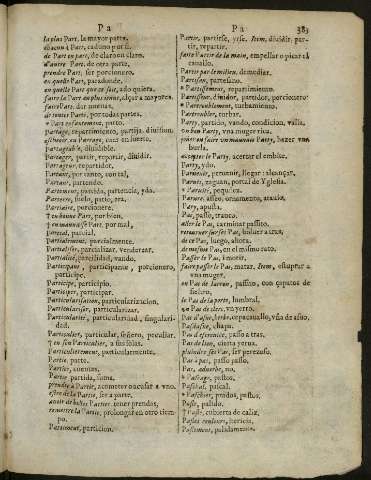 P a
P a
383
la plus Part, la mayor parte.
chacun à Part, cada uno por si.
De Part en part, de claro en claro.
D'autre Part, de otra parte.
prendre Part, ser porcionero.
en quelle Part, paradonde.
en quelle Part que ce soit, ado quiera.
faire la Part au plus tenu, alçar a mayores.
faire Part, dar noticia.
de toutes Parts, por todas partes.
Part enfantement, parto.
Partage, repartimiento, partija, division.
Partageable, diuidible.
Partager, partir, repartir, diuidir.
Partageur, repartidor.
Partant, por tanto, con tal,
Partant, partiendo.
Partement, partida, partencia, yda.
Parterre, suelo, patio, era.
Partiaire, porcionero.
& en bonne Part, por bien,
& en mauuaise Part, por mal,
Partial, parcial.
Partialement, parcialmente.
Partialiser, parcializar, vanderizar.
Partialité, parcialidad, vando.
Participant, participante, porcionero,
participe.
Participe, participio.
Participer, participar.
Particularisation, particularizacion.
Particulariser, particularizar.
Particularité, particularidad, singulari-
dad.
Particulier, particular, señero, peculiar.
& en son Particulier, a sus solas.
Particulierement, particularmente.
Partie, parte.
Parties, cuentas.
Partie, partida, suma.
prendre a Partie, acometer o acusar a vno.
estre de la Partie, ser a parte.
auoir de belles Parties, tener prendas.
remettre la Partie, prolongar en otro tiem-
po.
Partition, particion.
Partir, partirse, yrse. Item, diuidir, par-
tir, repartir.
faire Partir de la main, empellar o picar el
cauallo.
Partir par le milieu, demediar.
Partisan, partesano.
Partissement, repartimiento.
Partisseur, diuidor, partidor, porcionero.
Partroublement, turbamiento.
Partroubler, turbar.
Party, partido, vando, condicion, valia.
vn bon Party, vna muger rica.
jouer ou faire vn mauuais Party, hazer vna
burla.
accepter le Party, acetar el embite.
Party, ydo.
Paruenir, peruenir, llegar, alcançar.
Paruis, zaguan, portal de Yglesia.
Paruité, pequeñez.
Parure, asseo, ornamento, atauio.
Pary, apuesta.
Pas, passo, tranco.
aller le Pas, caminar passito.
retourner sur ses Pas, boluer a tras.
de ce Pas, luego, ahora.
du mesme Pas, en el mismo rato.
Passer le Pas, morir.
faire passer le Pas, matar. Item, estuprar a
vna muger.
Pas de larron, passito, con çapatos de
fieltro.
le Pas de la porte, lumbral.
vn Pas de clerc, vn yerro.
Pas d'asne, herbe, capacauallo, vña de asno.
Pas d'asne, chapa.
Pas d'escreuice, passo a tras.
Pas de lion, cierta yerua.
plaindre ses Pas, ser perezoso.
Pas à pas, passo passo.
Pas, aduerbe, no.
Pascage, pastos.
Paschal, pascal.
Paschier, prados, pastos.
Pasle, palido.
Pasle, cubierta de caliz.
Pasles couleurs, itericia.
Paslement, palidamente.